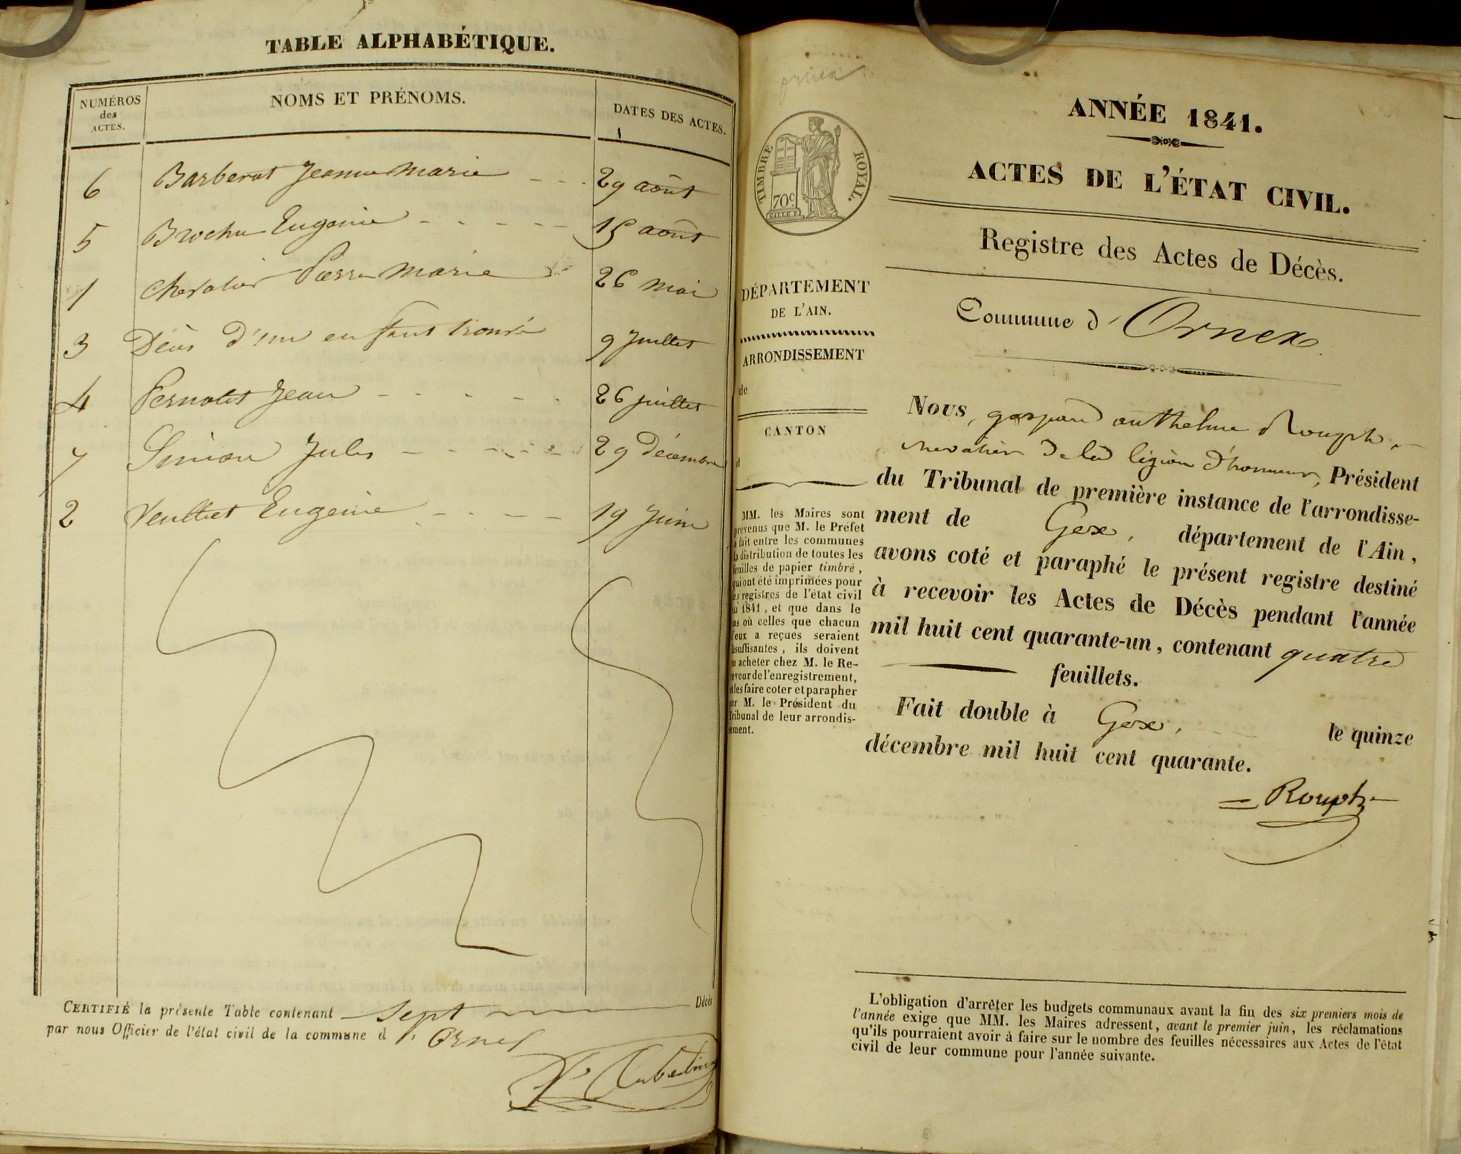 TABLE ALPHABÉTIQUE.
NUMÉROS
des
ACTES.
NOMS ET PRÉNOMS.
DATES DES ACTES.
6 Barberat Jeanne Marie 29 août
5 Brochu Eugenie 15 août
1 Chevalier Pierre Marie 26 mai
3 Décès d'un enfant trouvé 9 Juillet
4 Pernolet Jean 26 juillet
7 Simon Jules 29 décembre
2 Veuillet Eugenie 19 Juin
CERTIFIÉ la présente Table contenant sept Décès
par nous Officier de l'état civil de la commune d'Ornex
ornex
TIMBRE ROYAL.
70c
ANNÉE 1841.
ACTES DE L'ÉTAT CIVIL.
Registre des Actes de Décès.
Commune d'Ornex
DÉPARTEMENT
DE L'AIN.
ARRONDISSEMENT
de
CANTON
d
MM. les Maires sont
prévenus que M. le Préfet
a fait entre les communes
la distribution de toutes les
feuilles de papier timbré,
qui ont été imprimées pour
les registres de l'état civil
de 1841, et que dans le
cas où celles que chacun
d'eux a reçues seraient
insuffisantes, ils doivent
en acheter chez M. le Re-
ceveur de l'enregistrement,
et les faire coter et parapher
par M. le Président du
Tribunal de leur arrondis-
sement.
Nous, gaspard anthelme Rouph,
chevalier de la légion d'honneur, Président
du Tribunal de première instance de l'arrondisse-
ment de Gex, département de l'Ain,
avons coté et paraphé le présent registre destiné
à recevoir les Actes de Décès pendant l'année
mil huit cent quarante-un, contenant quatre
feuillets.
Fait double à Gex, le quinze
décembre mil huit cent quarante.
Rouph
L'obligation d'arrêter les budgets communaux avant la fin des six premiers mois de
l'année exige que MM. les Maires adressent, avant le premier juin, les réclamations
qu'ils pourraient avoir à faire sur le nombre des feuilles nécessaires aux Actes de l'état
civil de leur commune pour l'année suivante.